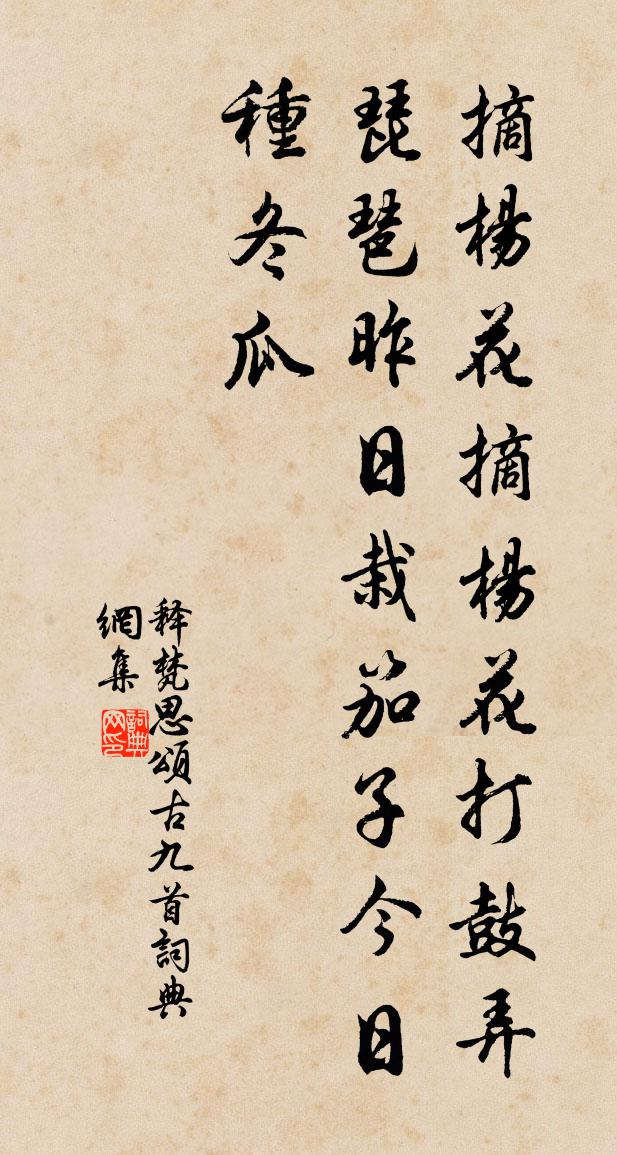 摘楊花摘楊花打鼓弄
琵琶昨日栽茄子今日
種冬瓜
释梵思頌古九首詞典
網集
詞典
网印